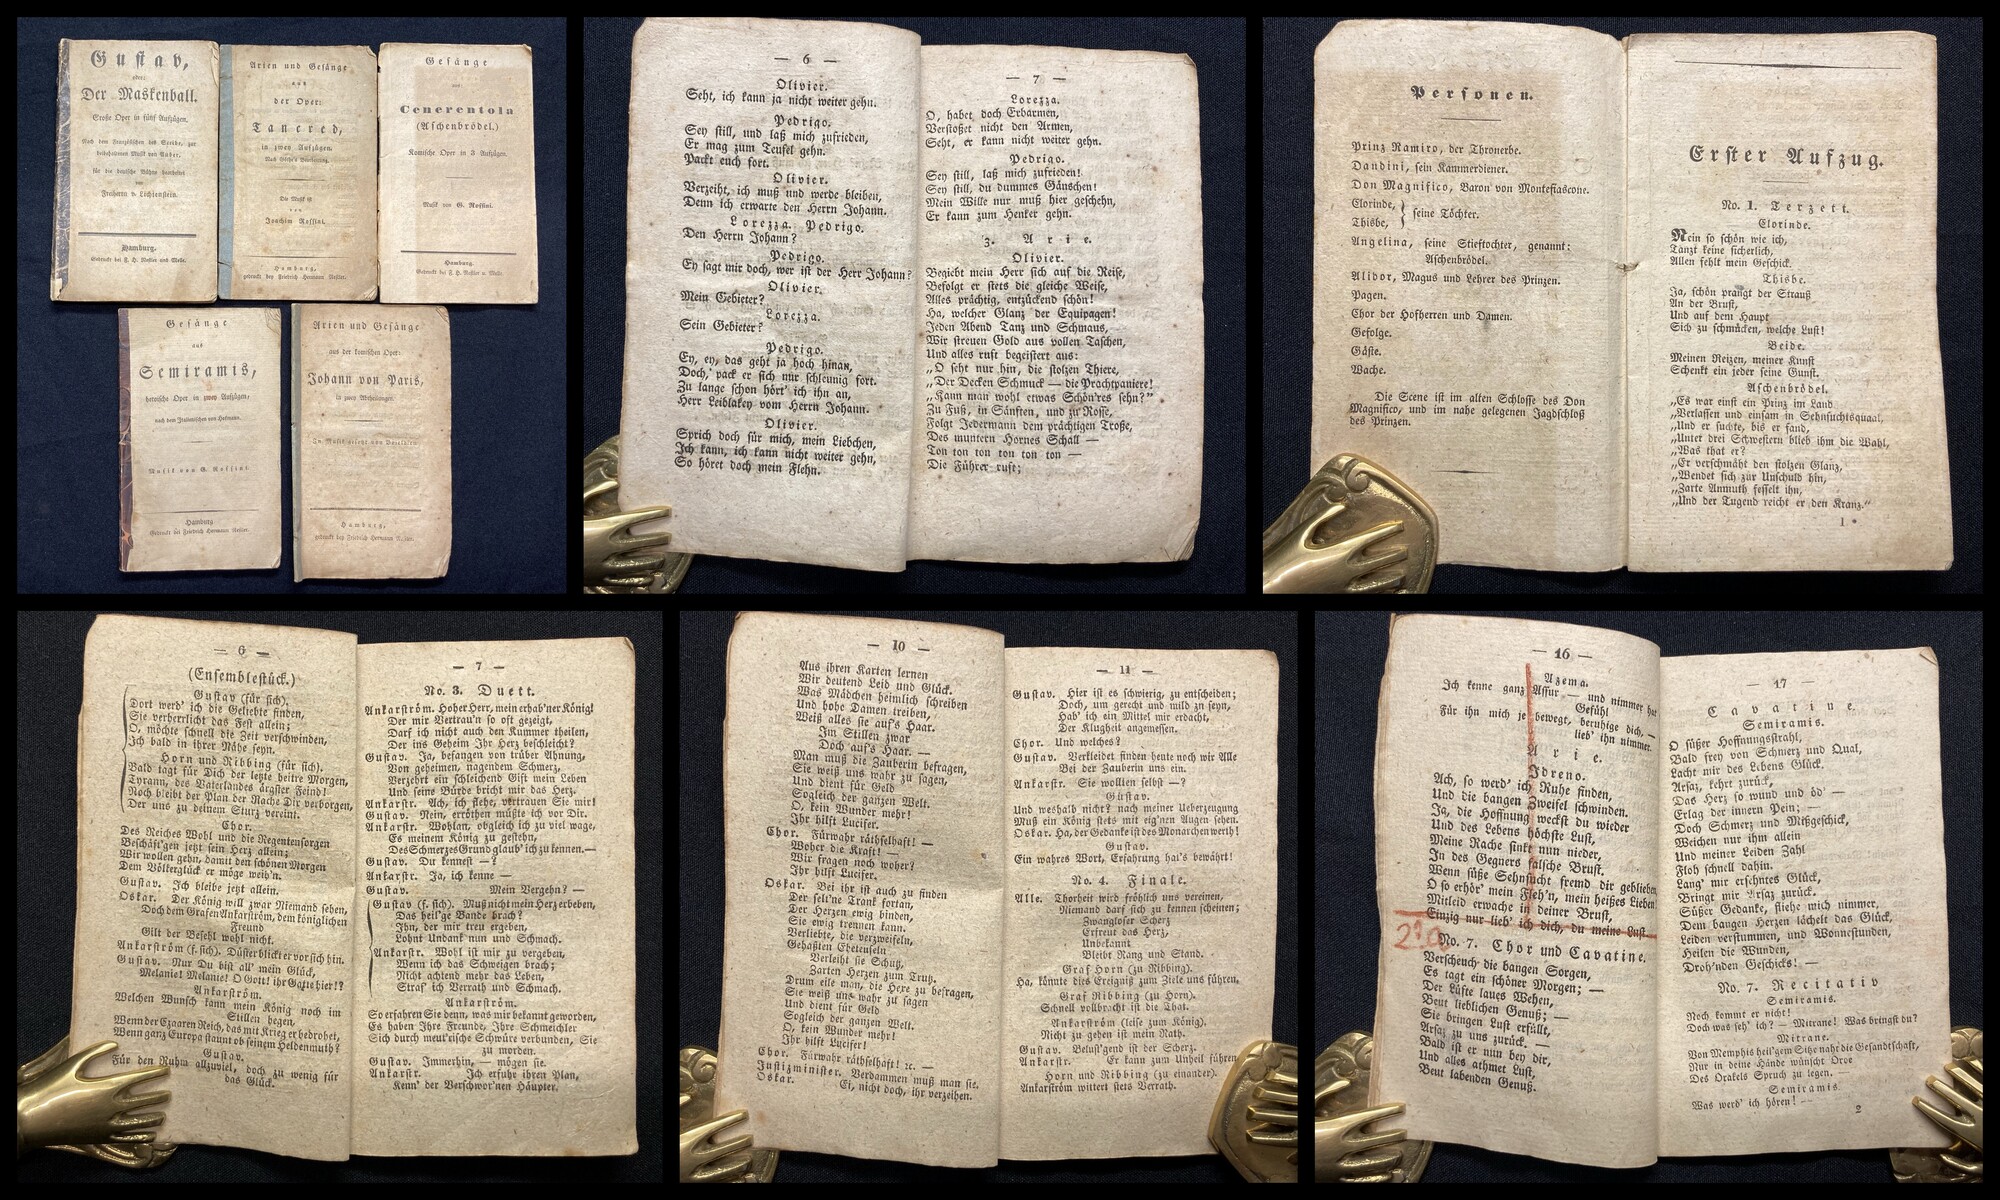 Gustav,
oder:
Der Maskenball.
Große Oper in fünf Aufzügen.
Nach dem Französischen des Scribe, zur
beibehaltenen Musik von Auber.
für die deutsche Bühne bearbeitet
von
Freiherrn v. Lichtenstein.
Hamburg.
Gedruckt bei F. H. Nestler und Melle.
Arien und Gesänge
aus
der Oper:
Tancred,
in zwey Aufzügen.
Die Musik ist
von
Joachim Rossini.
Hamburg,
gedruckt bey Friedrich Hermann Nestler.
Gesänge
aus:
Cenerentola
(Aschenbrödel.)
Komische Oper in 3 Aufzügen.
Musik von G. Rossini.
Hamburg.
Gedruckt bei F. H. Nestler u. Melle.
Gesänge
aus
Semiramis,
heroische Oper in zwey Aufzügen,
nach dem Italienischen von Hofmann.
Musik von G. Rossini.
Hamburg
Gedruckt bei Friedrich Hermann Nestler.
Arien und Gesänge
aus der komischen Oper:
Johann von Paris,
in zwey Abtheilungen.
In Musik gesetzt von Boieldieu
Hamburg,
gedruckt bey Friedrich Hermann Nestler.
— 6 —
Olivier.
Seht, ich kann ja nicht weiter gehn.
Pedrigo.
Sey still, und laß mich zufrieden,
Er mag zum Teufel gehn.
Packt euch fort.
Olivier.
Verzeiht, ich muß und werde bleiben,
Denn ich erwarte den Herrn Johann.
Lorezza. Pedrigo.
Den Herrn Johann?
Pedrigo.
Ey sagt mir doch, wer ist der Herr Johann?
Olivier.
Mein Gebieter?
Lorezza.
Sein Gebieter?
Pedrigo.
Ey, ey, das geht ja hoch hinan,
Doch, pack er sich nur schleunig fort.
Zu lange schon hört' ich ihn an,
Herr Leiblakey vom Herrn Johann.
Olivier.
Sprich doch für mich, mein Liebchen,
Ich kann, ich kann nicht weiter gehn,
So höret doch mein Flehn.
— 7 —
Lorezza.
O, habet doch Erbarmen,
Verstoßet nicht den Armen,
Seht, er kann nicht weiter gehn.
Pedrigo.
Sey still, laß mich zufrieden!
Sey still, du dummes Gänschen!
Mein Wille nur muß hier geschehn,
Er kann zum Henker gehn.
3. Arie.
Olivier.
Begiebt mein Herr sich auf die Reise,
Befolgt er stets die gleiche Weise,
Alles prächtig, entzückend schön!
Ha, welcher Glanz der Equipagen!
Jeden Abend Tanz und Schmaus,
Wir streuen Gold aus vollen Taschen,
Und alles ruft begeistert aus:
„O seht nur hin, die stolzen Thiere,
„Der Decken Schmuck — die Prachtpaniere!
„Kann man wohl etwas Schön'res sehn?"
Zu Fuß, in Sänften, und zu Rosse,
Folgt Jedermann dem prächtigen Trosse,
Des muntern Hornes Schall —
Ton ton ton ton ton ton —
Die Führer ruft;
Personen.
Prinz Ramiro, der Thronerbe.
Dandini, sein Kammerdiener.
Don Magnifico, Baron von Montefiascone.
Clorinde,
Thisbe,
} seine Töchter.
Angelina, seine Stieftochter, genannt:
Aschenbrödel.
Alidor, Magus und Lehrer des Prinzen.
Pagen.
Chor der Hofherren und Damen.
Gefolge.
Gäste.
Wache.
Die Scene ist im alten Schlosse des Don
Magnifico, und im nahe gelegenen Jagdschloß
des Prinzen.
Erster Aufzug.
No. 1. Terzett.
Clorinde.
Nein so schön wie ich,
Tanzt keine sicherlich,
Allen fehlt mein Geschick.
Thisbe.
Ja, schön prangt der Strauß
An der Brust,
Und auf dem Haupt
Sich zu schmücken, welche Lust!
Beide.
Meinen Reizen, meiner Kunst
Schenkt ein jeder seine Gunst.
Aschenbrödel.
„Es war einst ein Prinz im Land
„Verlassen und einsam in Sehnsuchtsquaal,
„Und er suchte, bis er fand,
„Unter drei Schwestern blieb ihm die Wahl,
„Was that er?
„Er verschmäht den stolzen Glanz,
„Wendet sich zur Unschuld hin,
„Zarte Anmuth fesselt ihn,
„Und der Tugend reicht er den Kranz."
1 *
— 6 —
(Ensemblestück.)
Gustav (für sich).
Dort werd' ich die Geliebte finden,
Sie verherrlicht das Fest allein;
O, möchte schnell die Zeit verschwinden,
Ich bald in ihrer Nähe seyn.
Horn und Ribbing (für sich).
Bald tagt für Dich der letzte heitre Morgen,
Tyrann, des Vaterlandes ärgster Feind!
Noch bleibt der Plan der Rache Dir verborgen,
Der uns zu deinem Sturz vereint.
Chor.
Des Reiches Wohl und die Regentensorgen
Beschäft'gen jetzt sein Herz allein;
Wir wollen gehn, damit den schönen Morgen
Dem Völkerglück er möge weih'n.
Gustav. Ich bleibe jetzt allein.
Oskar. Der König will zwar Niemand sehen,
Doch dem Grafen Ankarström, dem königlichen
Freund
Gilt der Befehl wohl nicht.
Ankarström (f. sich). Düster blickt er vor sich hin.
Gustav. Nur Du bist all' mein Glück,
Melanie! Melanie! O Gott! ihr Gatte hier!?
Ankarström.
Welchen Wunsch kann mein König noch im
Stillen hegen,
Wenn der Czaaren Reich, das mit Krieg er bedrohet,
Wenn ganz Europa staunt ob seinem Heldenmuth?
Gustav.
Für den Ruhm allzuviel, doch zu wenig für
das Glück.
— 7 —
No. 3. Duett.
Ankarström. Hoher Herr, mein erhab'ner König!
Der mir Vertrau'n so oft gezeigt,
Darf ich nicht auch den Kummer theilen,
Der ins Geheim Ihr Herz beschleicht?
Gustav. Ja, befangen von trüber Ahnung,
Von geheimen, nagendem Schmerz,
Verzehrt ein schleichend Gift mein Leben
Und seine Bürde bricht mir das Herz.
Ankarstr. Ach, ich flehe, vertrauen Sie mir!
Gustav. Nein, erröthen müßte ich vor Dir.
Ankarstr. Wohlan, obgleich ich zu viel wage,
Es meinem König zu gestehn,
Des Schmerzes Grund glaub' ich zu kennen.—
Gustav. Du kennest —?
Ankarstr. Ja, ich kenne —
Gustav. Mein Vergehn? —
Gustav (f. sich). Muß nicht mein Herz erbeben,
Das heil'ge Bande brach?
Ihn, der mir treu ergeben,
Lohnt Undank nun und Schmach.
Ankarstr. Wohl ist mir zu vergeben,
Wenn ich das Schweigen brach;
Nicht achtend mehr das Leben,
Straf' ich Verrath und Schmach.
Ankarström.
So erfahren Sie denn, was mir bekannt geworden,
Es haben Ihre Freunde, Ihre Schmeichler
Sich durch meut'rische Schwüre verbunden, Sie
zu morden.
Gustav. Immerhin, — mögen sie.
Ankarstr. Ich erfuhr ihren Plan,
Kenn' der Verschwor'nen Häupter.
— 10 —
Aus ihren Karten lernen
Wir deutend Leid und Glück.
Was Mädchen heimlich schreiben
Und hohe Damen treiben,
Weiß alles sie auf's Haar.
Im Stillen zwar
Doch auf's Haar. —
Man muß die Zauberin befragen,
Sie weiß uns wahr zu sagen,
Und dient für Geld
Sogleich der ganzen Welt.
O, kein Wunder mehr!
Ihr hilft Lucifer.
Chor. Fürwahr räthselhaft! —
Woher die Kraft! —
Wir fragen noch woher?
Ihr hilft Lucifer.
Oskar. Bei ihr ist auch zu finden
Der selt'ne Trank fortan,
Der Herzen ewig binden,
Sie ewig trennen kann.
Verliebte, die verzweifeln,
Gehaßten Eheteufeln
Verleiht sie Schutz,
Zarten Herzen zum Trutz.
Drum eile man, die Hexe zu befragen,
Sie weiß uns wahr zu sagen
Und dient für Geld
Sogleich der ganzen Welt.
O, kein Wunder mehr!
Ihr hilft Lucifer!
Chor. Fürwahr räthselhaft! ꝛc. —
Justizminister. Verdammen muß man sie.
Oskar. Ei, nicht doch, ihr verzeihen.
— 11 —
Gustav. Hier ist es schwierig, zu entscheiden;
Doch, um gerecht und mild zu seyn,
Hab' ich ein Mittel mir erdacht,
Der Klugheit angemessen.
Chor. Und welches?
Gustav. Verkleidet finden heute noch wir Alle
Bei der Zauberin uns ein.
Ankarstr. Sie wollten selbst —?
Gustav.
Und weshalb nicht? nach meiner Ueberzeugung
Muß ein König stets mit eig'nen Augen sehen.
Oskar. Ha, der Gedanke ist des Monarchen werth!
Gustav.
Ein wahres Wort, Erfahrung hat's bewährt!
No. 4. Finale.
Alle. Thorheit wird fröhlich uns vereinen,
Niemand darf sich zu kennen scheinen;
Zwangloser Scherz
Erfreut das Herz,
Unbekannt
Bleibt Rang und Stand.
Graf Horn (zu Ribbing).
Ha, könnte dies Ereigniß zum Ziele uns führen,
Graf Ribbing (zu Horn).
Schnell vollbracht ist die That.
Ankarström (leise zum König).
Nicht zu gehen ist mein Rath.
Gustav. Belust'gend ist der Scherz.
Ankarstr. Er kann zum Unheil führen
Horn und Ribbing (zu einander).
Ankarström wittert stets Verrath.
— 16 —
Azema.
Ich kenne ganz Assur — und nimmer hat
Gefühl
Für ihn mich je bewegt, beruhige dich, —
lieb' ihn nimmer.
Arie.
Idreno.
Ach, so werd' ich Ruhe finden,
Und die bangen Zweifel schwinden.
Ja, die Hoffnung weckst du wieder
Und des Lebens höchste Lust,
Meine Rache sinkt nun nieder,
In des Gegners falsche Brust.
Wenn süße Sehnsucht fremd dir geblieben
O so erhör' mein Fleh'n, mein heißes Lieben
Mitleid erwache in deiner Brust,
Einzig nur lieb' ich dich, du meine Lust.
No. 7. Chor und Cavatine.
Verscheuch die bangen Sorgen,
Es tagt ein schöner Morgen; —
Der Lüfte laues Wehen,
Beut lieblichen Genuß; —
Sie bringen Lust erfüllt,
Arsaz zu uns zurück. —
Bald ist er nun bey dir,
Und alles athmet Lust,
Beut labenden Genuß.
— 17 —
Cavatine.
Semiramis.
O süßer Hoffnungsstrahl,
Bald frey von Schmerz und Qual,
Lacht mir des Lebens Glück.
Arsaz, kehrt zurück,
Das Herz so wund und öd' —
Erlag der innern Pein; —
Doch Schmerz und Mißgeschick,
Weichen nur ihm allein
Und meiner Leiden Zahl
Floh schnell dahin.
Lang' mir ersehntes Glück,
Bringt mir Arsaz zurück.
Süßer Gedanke, fliehe mich nimmer,
Meinem Herzen lächelt das Glück,
Leiden verstummen, und Wonnestunden,
Heilen die Wunden,
Droh'nden Geschicks! —
No. 7. Recitativ
Semiramis.
Noch kommt er nicht!
Doch was seh' ich? — Mitrane! Was bringst du?
Mitrane.
Von Memphis heil'gem Sitze naht die Gesandtschaft,
Nur in deine Hände wünscht Oroe
Des Orakels Spruch zu legen. —
Semiramis.
Was werd' ich hören! —
2